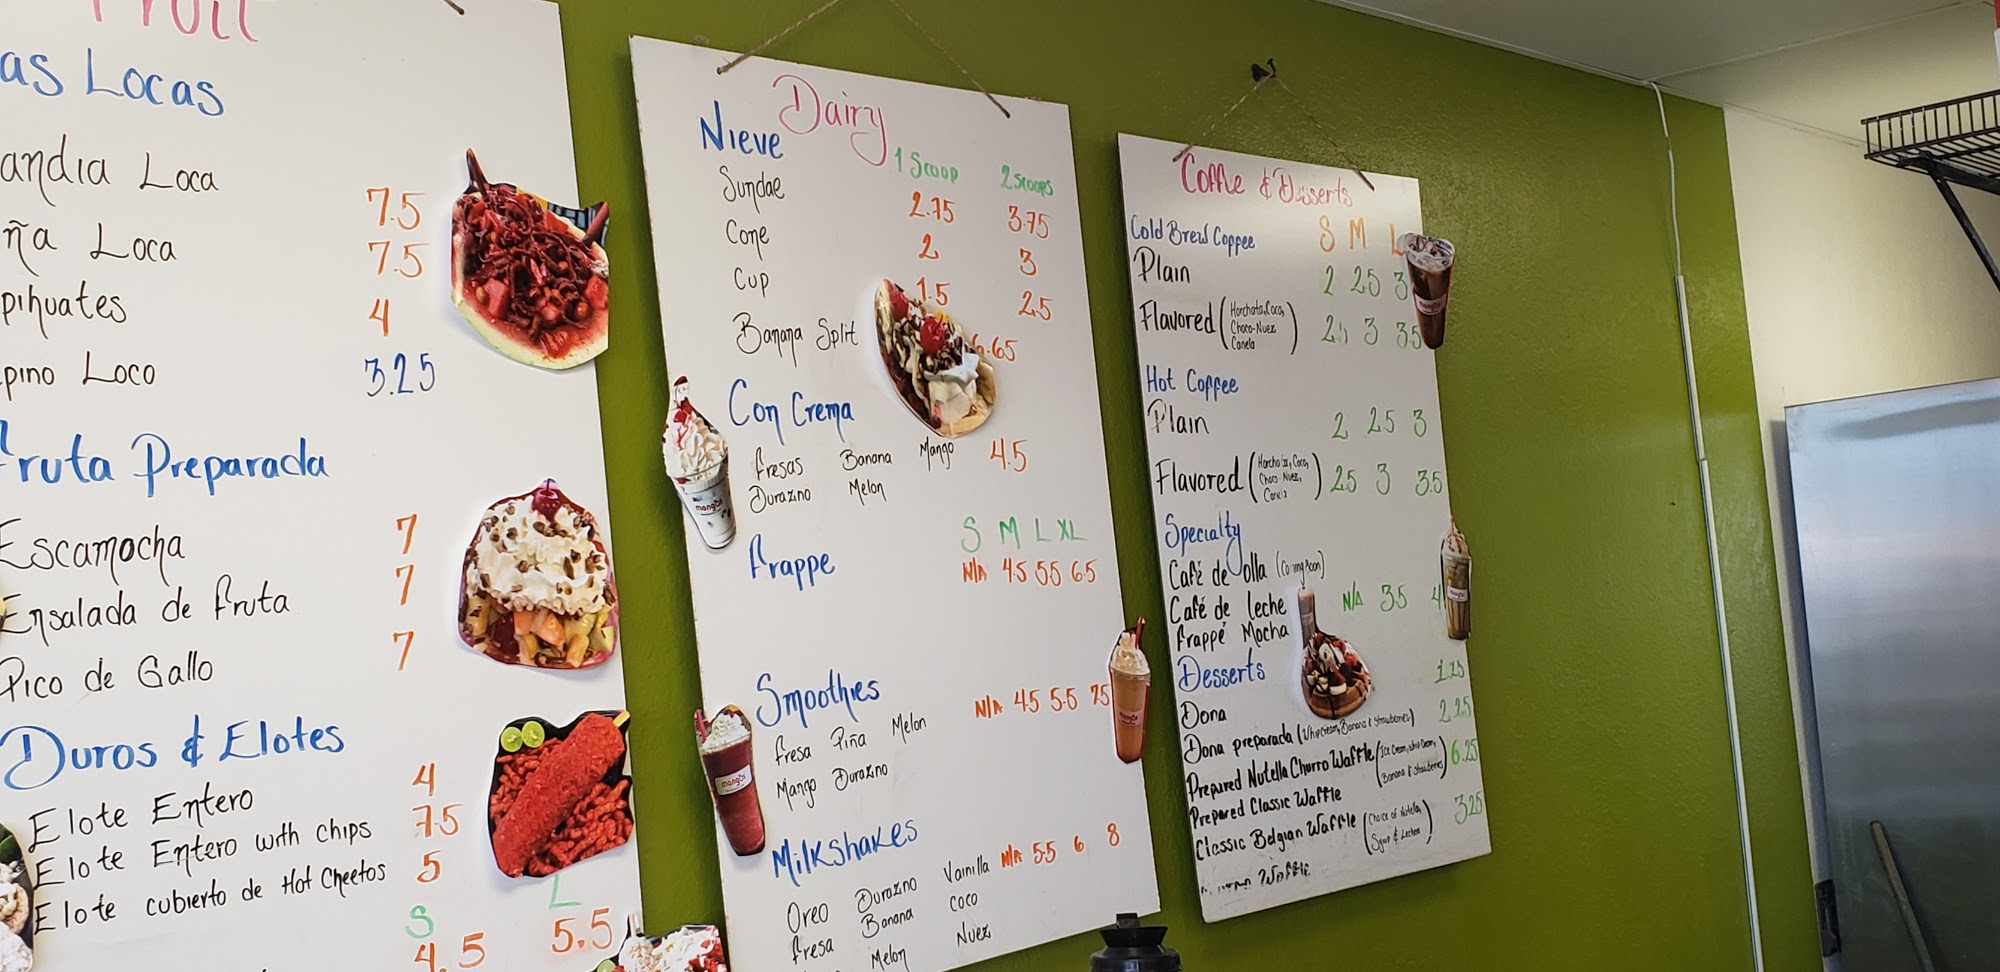 Fruit
as Locas
andia Loca 7.5
ña Loca 7.5
pihuates 4
pino Loco 3.25
Fruta Preparada
Escamocha 7
Ensalada de Fruta 7
Pico de Gallo 7
Duros & Elotes
Elote Entero 4
Elote Entero with chips 7.5
Elote cubierto de Hot Cheetos 5
S L
4.5 5.5
Dairy
Nieve
1 Scoop 2 scoops
Sundae 2.75 3.75
Cone 2 3
Cup 1.5 2.5
Banana Split 6.65
Con Crema
Fresas Banana Mango 4.5
Durazino Melon
S M L XL
Frappe N/A 4.5 5.5 6.5
Smoothies N/A 4.5 5.5 7.5
Fresa Piña Melon
Mango Durazno
Milkshakes N/A 5.5 6 8
Oreo Durazno Vainilla
Fresa Banana Coco
Melon Nuez
Coffee & Desserts
Cold Brew Coffee S M L
Plain 2 2.5 3
Flavored (Horchata, Coco, 2.5 3 3.5
Choco-Nuez
Canela)
Hot Coffee
Plain 2 2.5 3
Flavored (Horchata, Coco, 2.5 3 3.5
Choco Nuez,
Canela)
Specialty
Café de olla (Coming soon)
Café de leche N/A 3.5 4
Frappé Mocha
Desserts 1.25
Dona 2.25
Dona preparada (Whip cream, Banana & strawberries)
Prepared Nutella Churro Waffle (Ice Cream, whip cream, 6.25
Banana & strawberries)
Prepared Classic Waffle
Classic Belgian Waffle (Choice of Nutella, 3.25
Syrup & Lechera)
Waffle
mangos
mangos
mangos
mangos